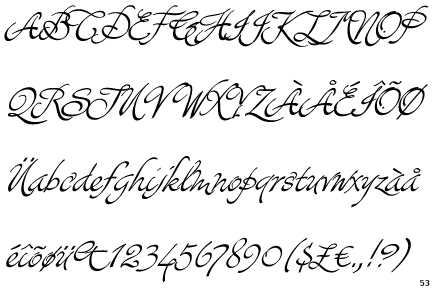 ABCDEFGHIJKLMNOP
QRSTUVWXYZÀÅÉÎÕØ
Üabcdefghijklmnopqrstuvwxyzàå
éîõøü&1234567890($£€.,!?)
53